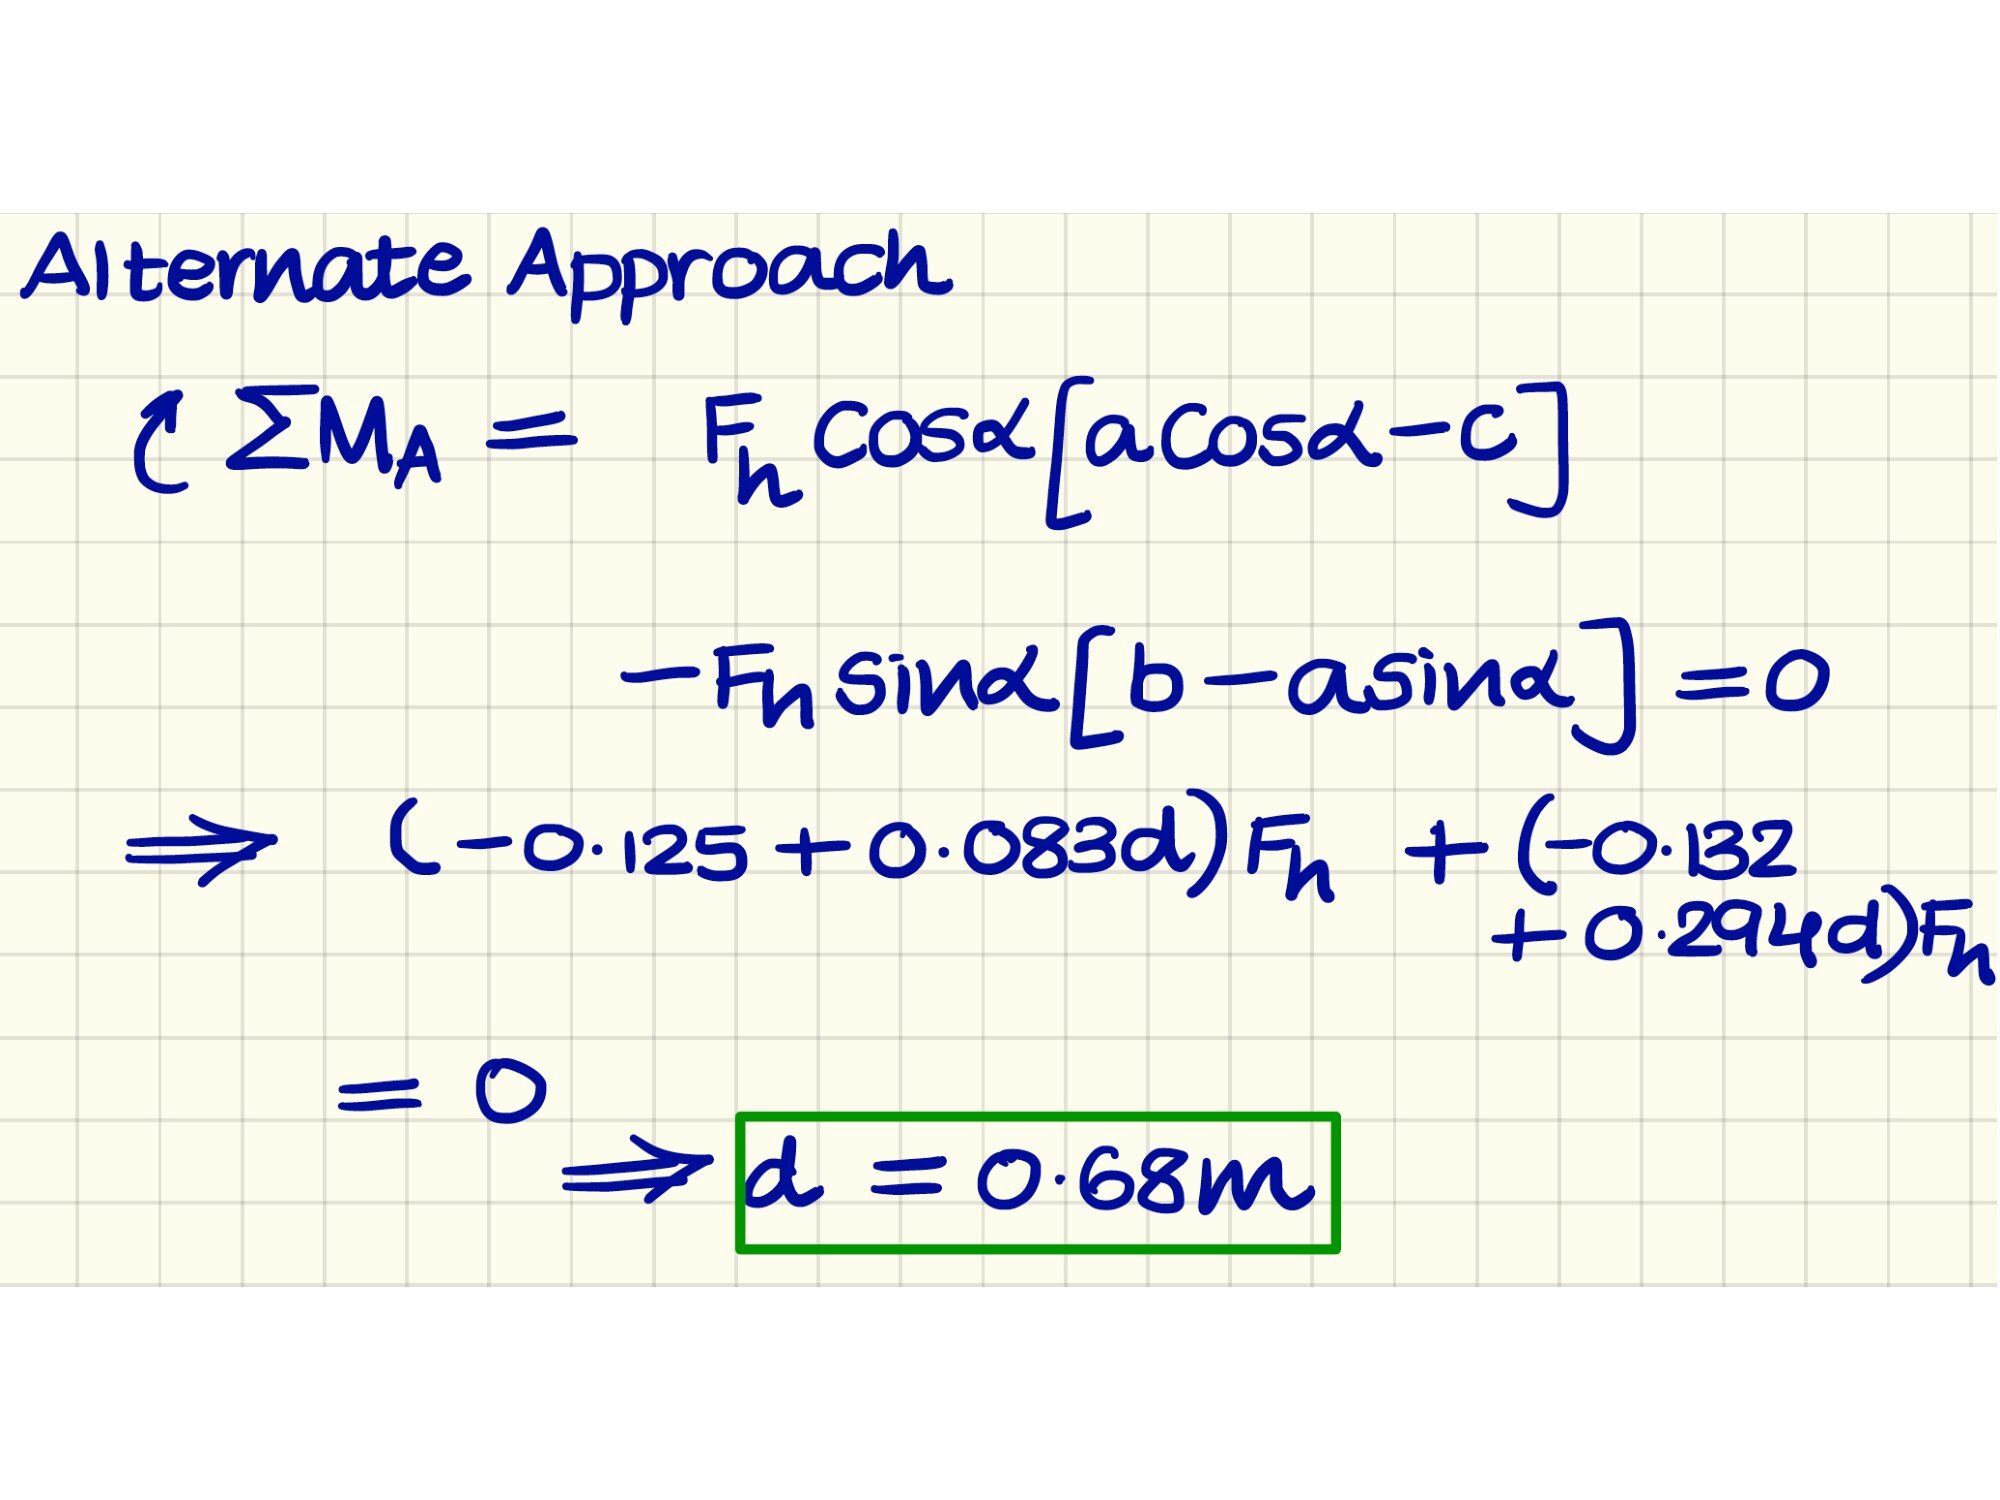 Alternate Approach
↻ ΣM_A = F_h cosα[a cosα - c]
- F_h sinα[b - a sinα] = 0
⇒ (-0.125 + 0.083d)F_h + (-0.132
+ 0.294d)F_h
= 0
⇒ d = 0.68m